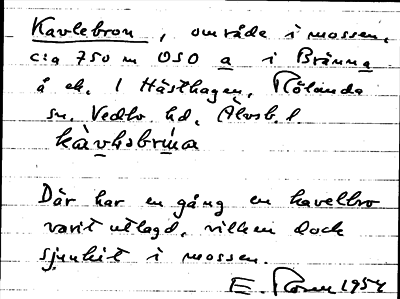 Kavlebron, område i mossen,
c:a 750 m OSO a i Bränna
å ek. 1 Hästhagen, Rölanda
sn. Vedbo hd. Älvsb. l.
Där har en gång en kavelbro
varit utlagd, vilken dock
sjunkit i mossen.
E. 1954